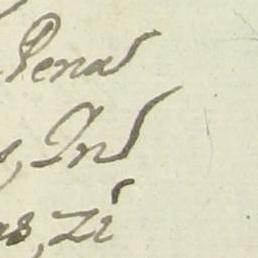 Penas
, Ins
as, zi